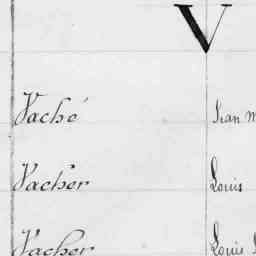 V
Vaché Jean M
Vacher Louis
Vacher Louis